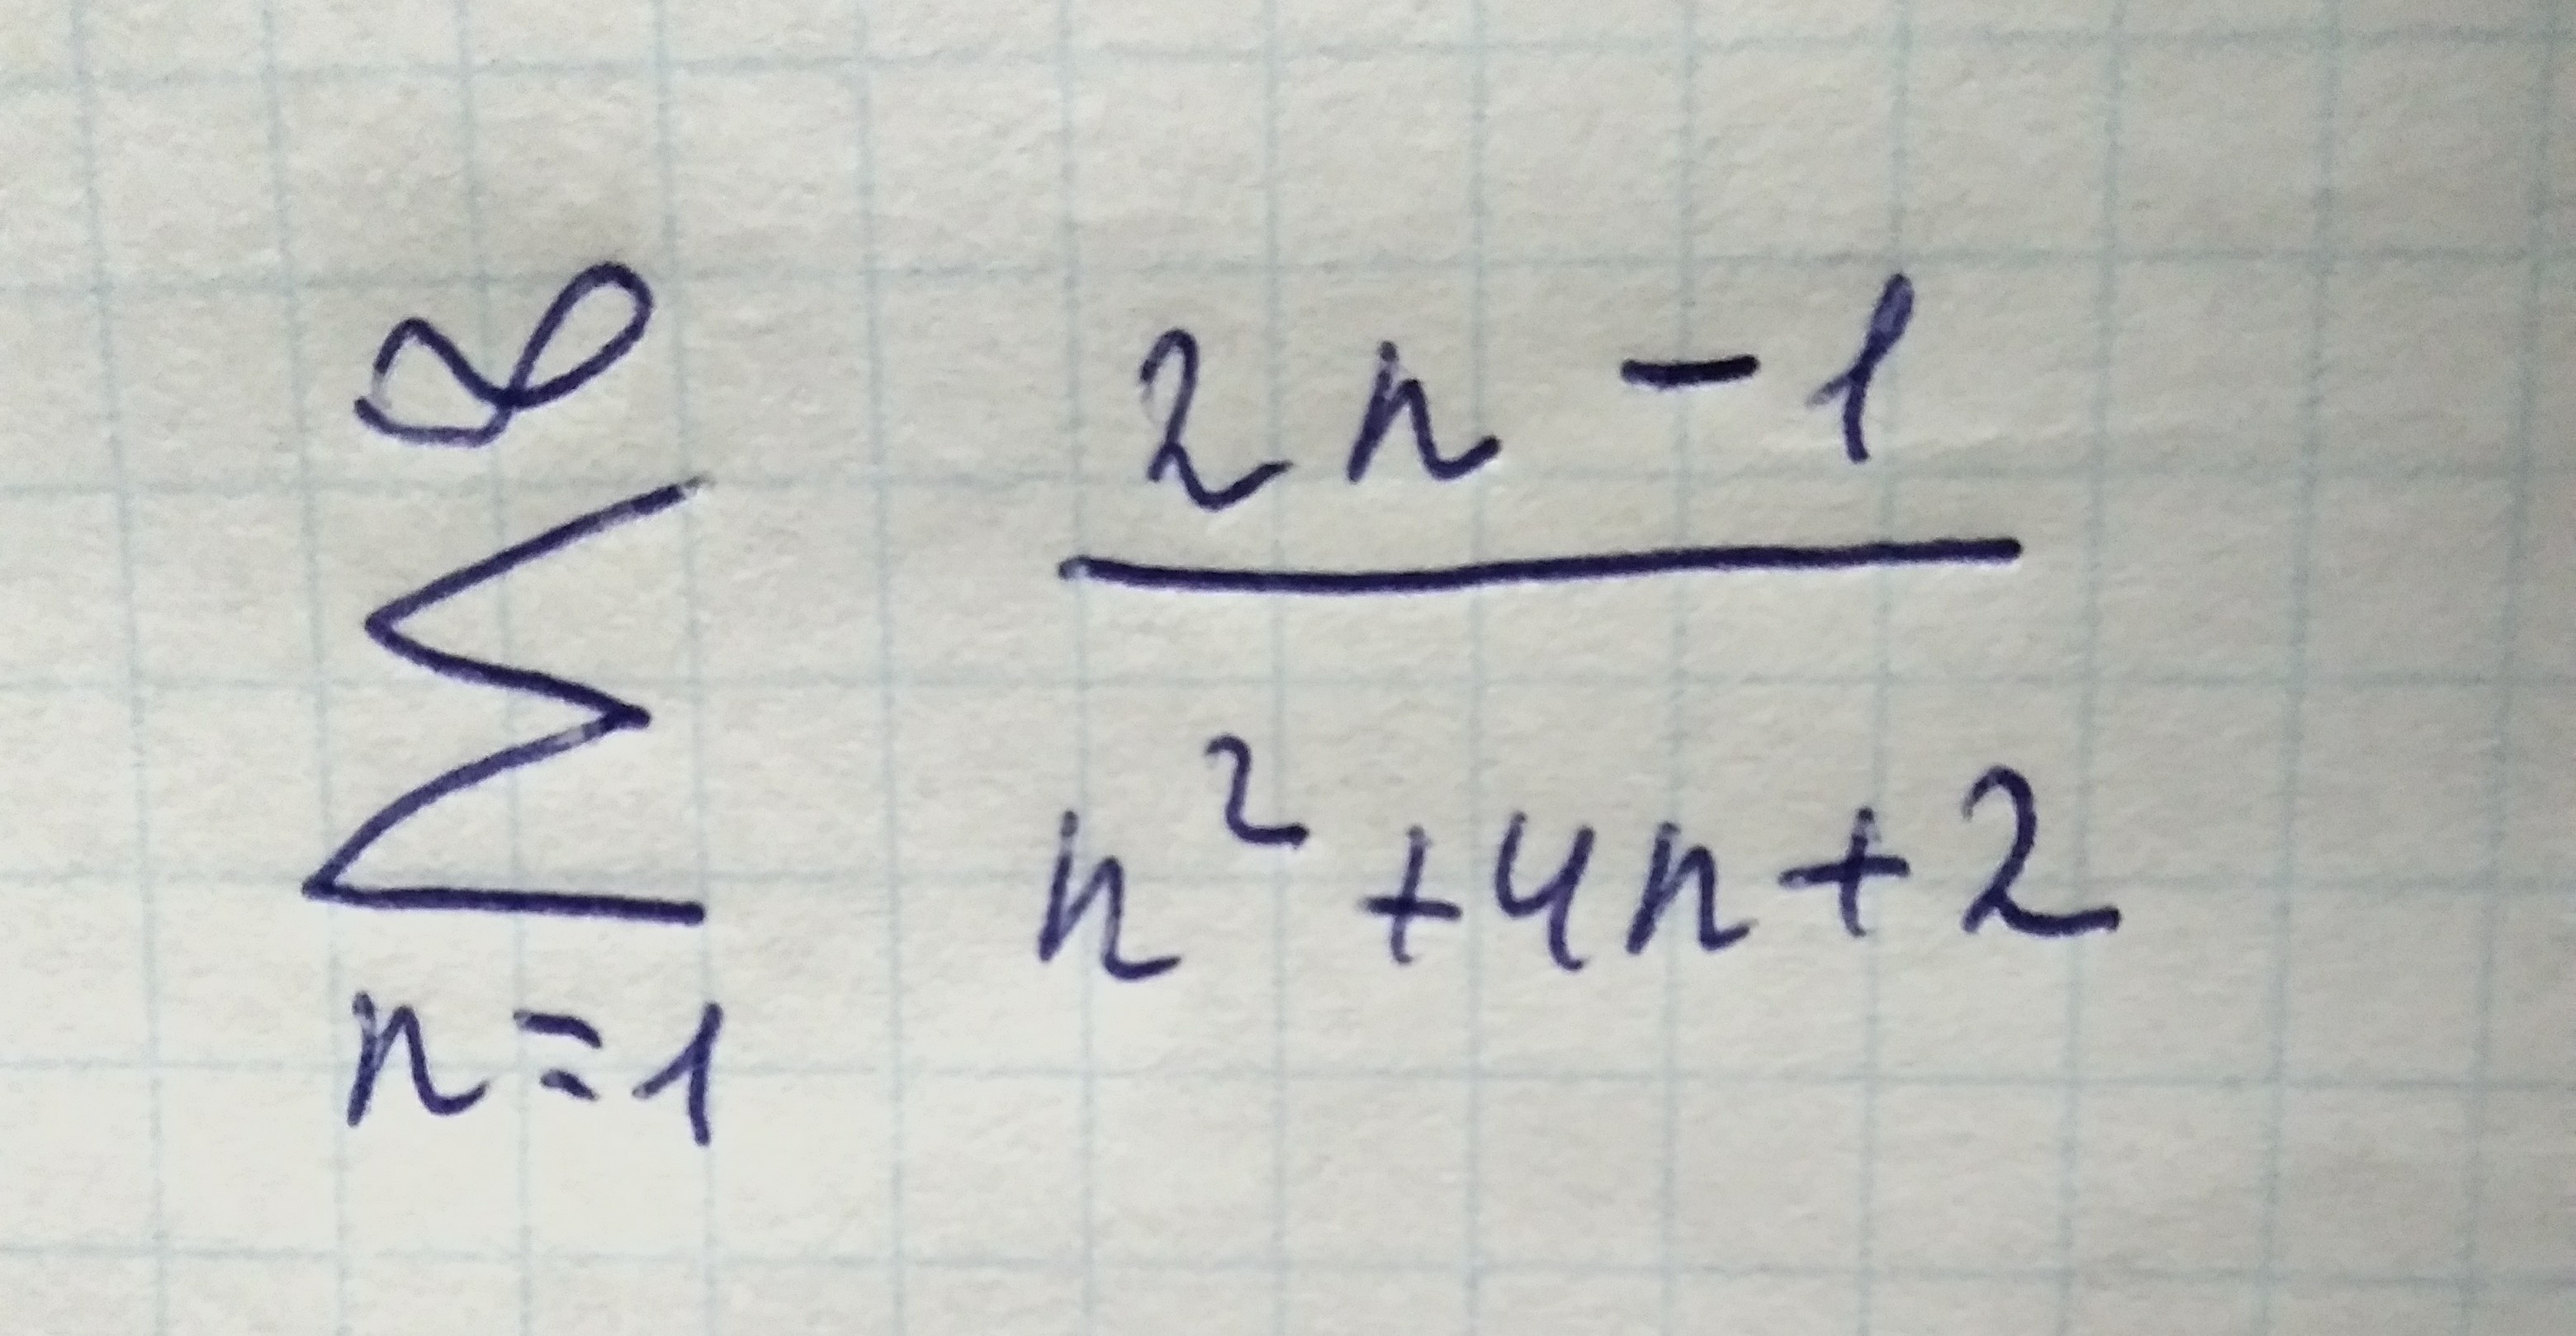 ∞
∑
n=1
2n-1
n²+4n+2